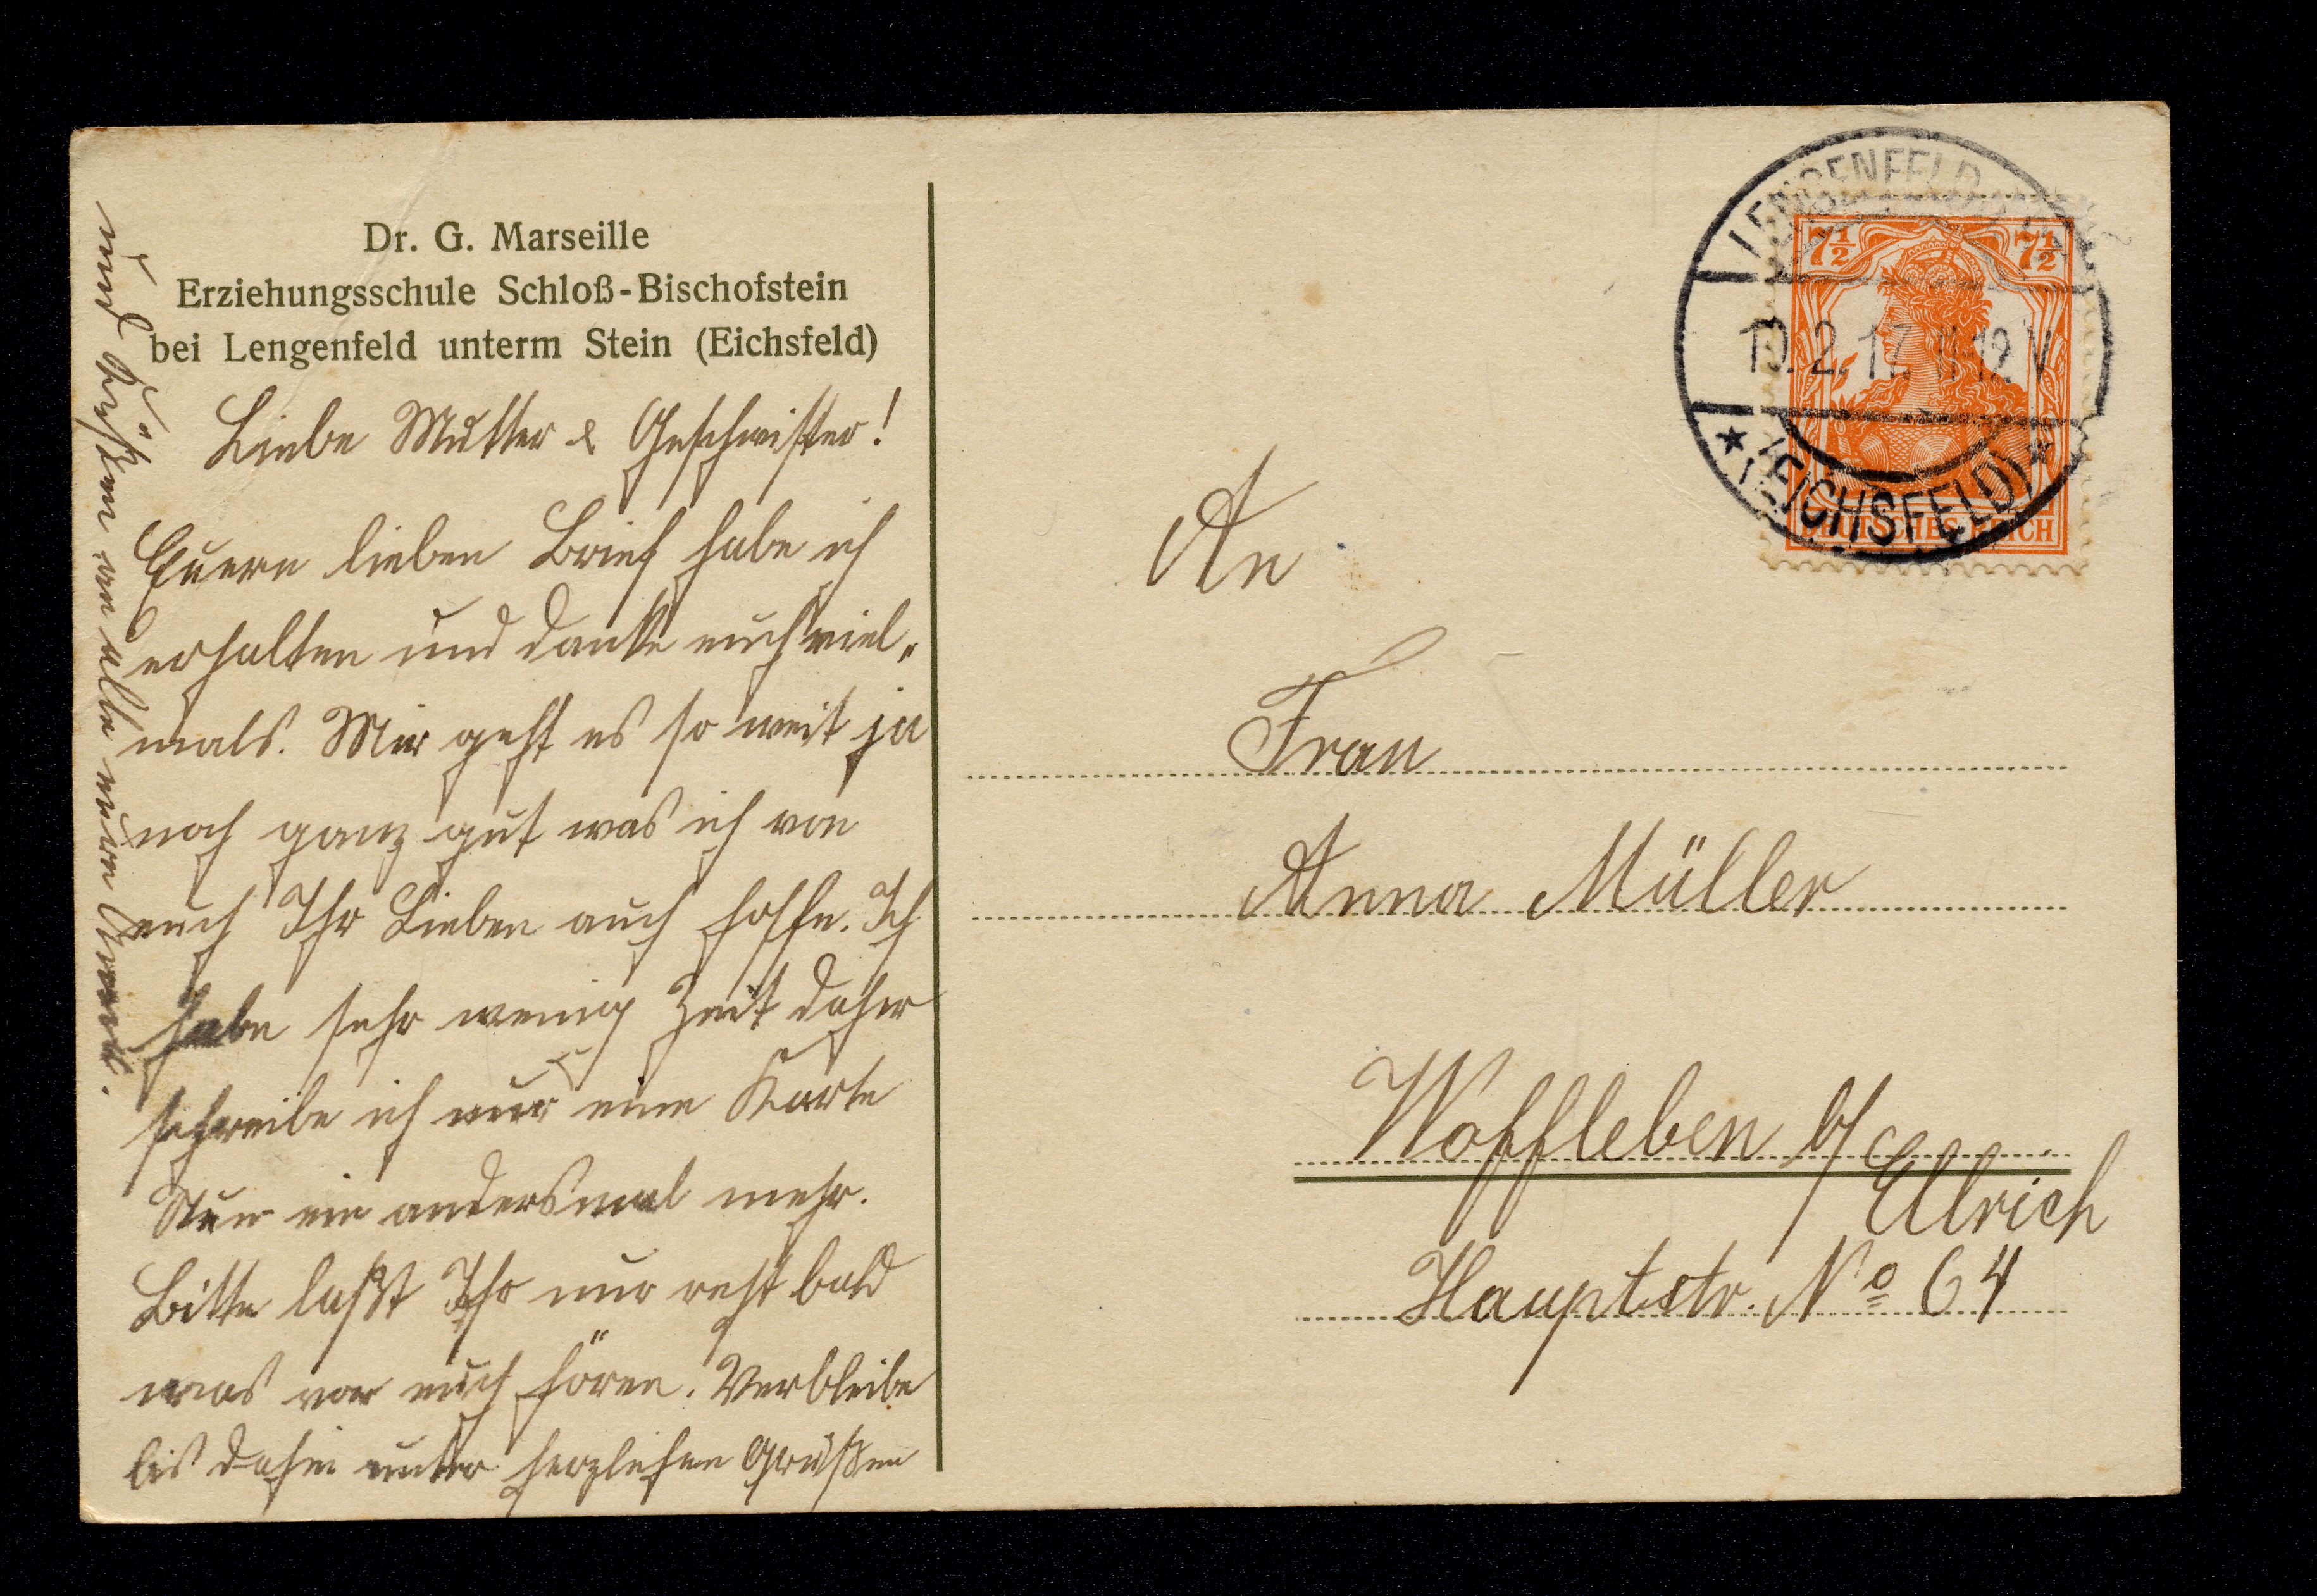 Dr. G. Marseille
Erziehungsschule Schloß-Bischofstein
bei Lengenfeld unterm Stein (Eichsfeld)
Liebe Mutter & Geschwister!
Euern lieben Brief habe ich
erhalten und danke euch viel„
mals. Mir geht es so weit ja
noch ganz gut was ich von
euch Ihr Lieben auch hoffe. Ich
habe sehr wenig Zeit daher
schreibe ich nur eine Karte
Nun ein andersmal mehr.
Bitte laßt Ihr nur recht bald
was von euch hören. Verbleibe
bis dahin unter herzlichen Grüßen
und Küßen an alle euer
An
Frau
Anna Müller
Woffleben b/
Ellrich
Hauptstr. No 64
LENGENFELD
2.17. 11-12 V
(EICHSFELD)
7½ 7½
DEUTSCHES REICH